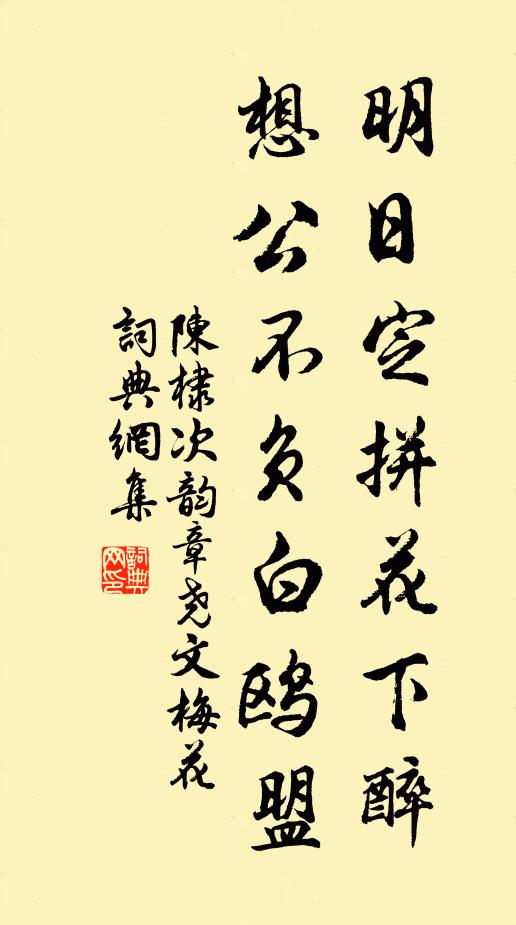 明日定拼花下醉
想公不負白鷗盟
陳棣次韵章堯文梅花
詞典網集
詞典网印